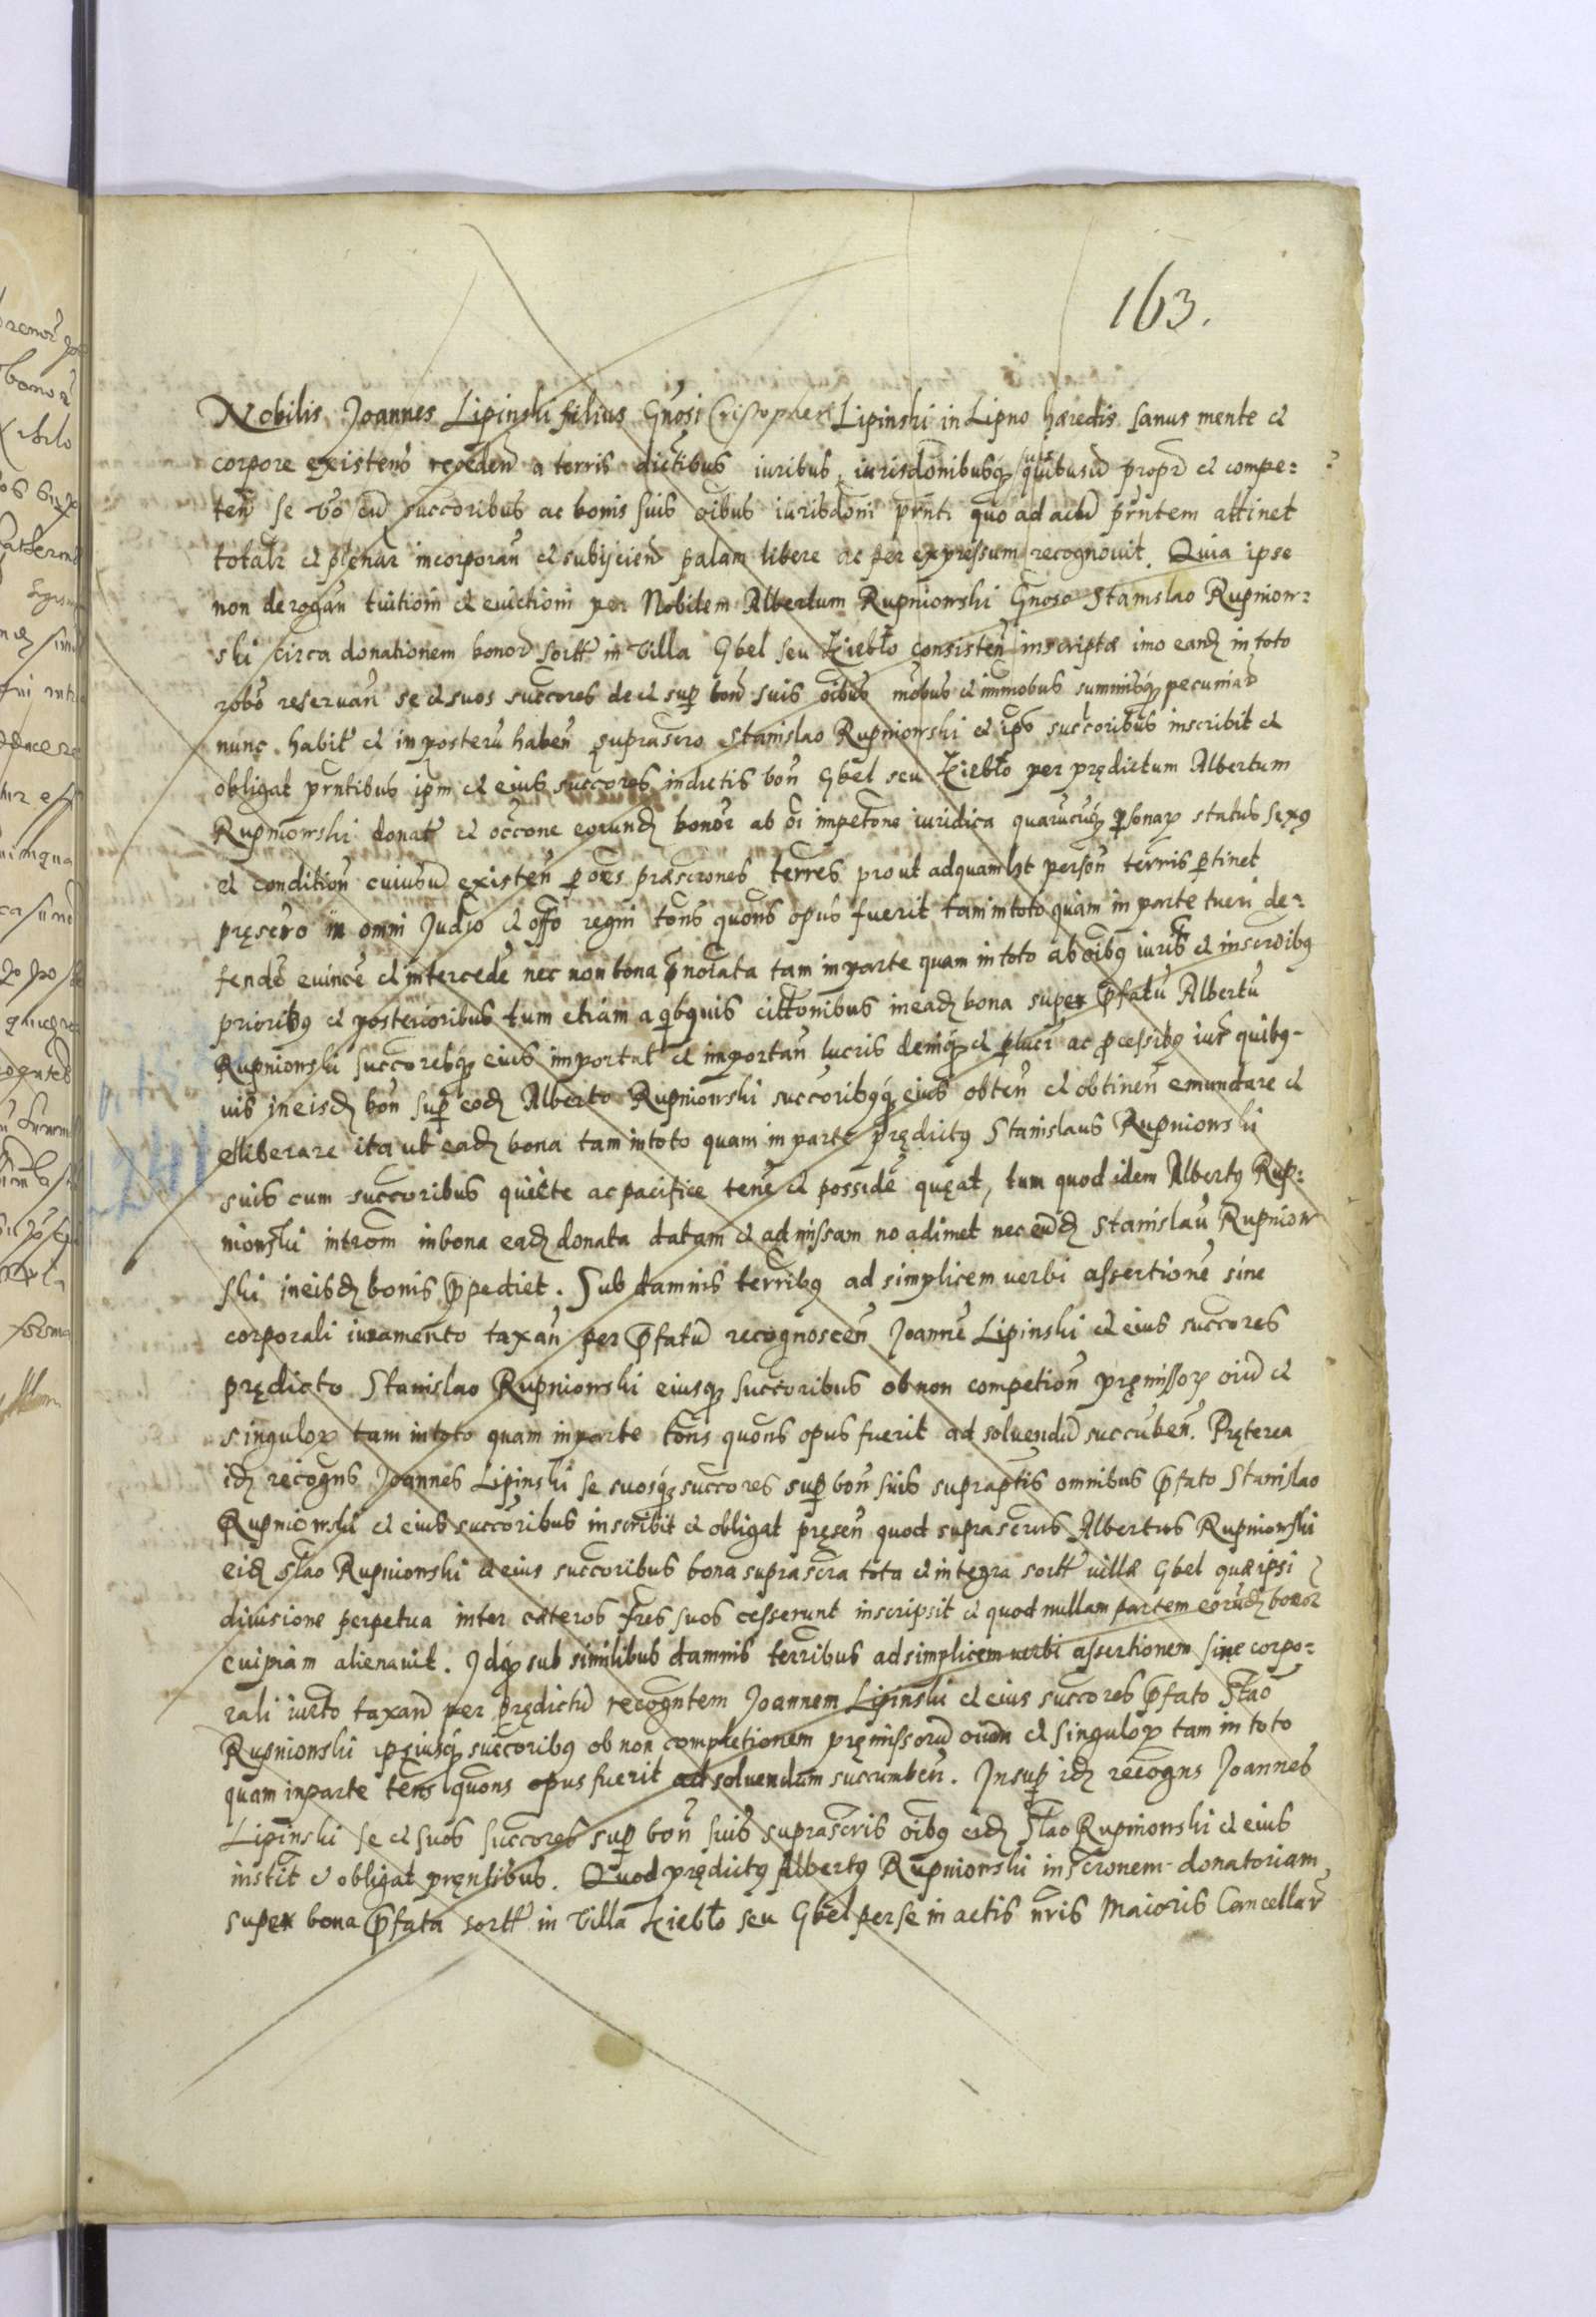 163.
Nobilis Joannes Lipinski filius Gnosi Cristopheri Lipinski in Lipno hæredis sanus mente et
corpore existens receden a terris dictibus iuribus iurisdonibusq suis quibusu propr et compe=
ten se vo eu succoribus ac bonis suis oibus iurisdoni prnti quo ad actu prntem attinet
totalr et plenar incorporan et subijcien palam libere ac per expressum recognouit. Quia ipse
non derogan tuitioni et euictioni per Nobilem Albertum Rupniowski Gnoso Stanislao Rupniow=
ski circa donationem bonor sortt in Villa Gbel seu Kiebło consisten inscriptæ imo eandz in toto
robo reseruan se et suos succores de et sup bon suis oibus mobus et immobus summisq pecuniar
nunc habit et in posteru haben suprascro Stanislao Rupniowski et ips succoribus inscribit et
obligat prntibus ipm et eius succores in dictis bon Gbel seu Kiebło per prędictum Albertum
Rupniowski donat et occone eorundz bonor ab oi impetone iuridica quarucuq psonar status sexq
et condition cuiusu existen p oes præscrones terres prout ad quamlbt person terris ptinet
pręscro in omni Judio et offo regni tons quons opus fuerit tam in toto quam in parte tueri de=
fende euince et intercede nec non bona pnotata tam in parte quam in toto ab oibq iurib et inscroibq
prioribq et posterioribus tum etiam a qbquis cittonibus in eadz bona super pfatu Albertu
Rupniowski succoresq eius importat et importan lucris demiq et pluci ac pcessibq iur quibq-
uis in eisdz bon sup eodz Alberto Rupniowski succoribqq eius obten et obtinen emundare et
elliberare ita ut eadz bona tam in toto quam in parte prędictq Stanislaus Rupniowski
suis cum succoribus quiete ac pacifice tene et posside quęat, tum quod idem Albertq Rup=
niowski introm in bona eadz donata datam et admissam no adimet nec eudz Stanislau Rupniow
ski in eisdz bonis ppediet. Sub damnis terribq ad simplicem uerbi assertione sine
corporali iuramento taxan per pfatu recognoscen Joanne Lipinski et eius succores
prędicto Stanislao Rupniowski eiusq succoribus ob non competion pręmissor oiu et
singulor tam in toto quam in parte tons quons opus fuerit ad soluendu succuben. Pręterea
idz recogns Joannes Lipinski se suosq succores sup bon suis supraptis omnibus pfato Stanislao
Rupniowski et eius succoribus inscribit et obligat pręsen quod suprascrus Albertus Rupniowski
eidz Slao Rupniowski et eius succoribus bona suprascra tota et integra sortt uillæ Gbel quæ ipsi
diuisione perpetua inter cæteros fres suos cesserunt inscripsit et quod nullam partem eorudz bonor
cuipiam alienauit. Jdq sub similibus damnis terribus ad simplicem uerbi assertionem sine corpo=
rali iurto taxan per prędictu recogntem Joannem Lipinski et eius succores pfato Slao
Rupniowski ipsiusq succoribq ob non completionem pręmissoru oium et singulor tam in toto
quam in parte tens quons opus fuerit ad soluendum succumben. Jnsup idz recogns Joannes
Lipinski se et suos succores sup bon suis suprascris oibq eidz Slao Rupniowski et eius
instit et obligat pręntibus. Quod prędictq Albertq Rupniowski inscronem donatoriam
super bona pfata sortt in Villa Kiebło seu Gbel per se in actis nris Maioris Cancellar